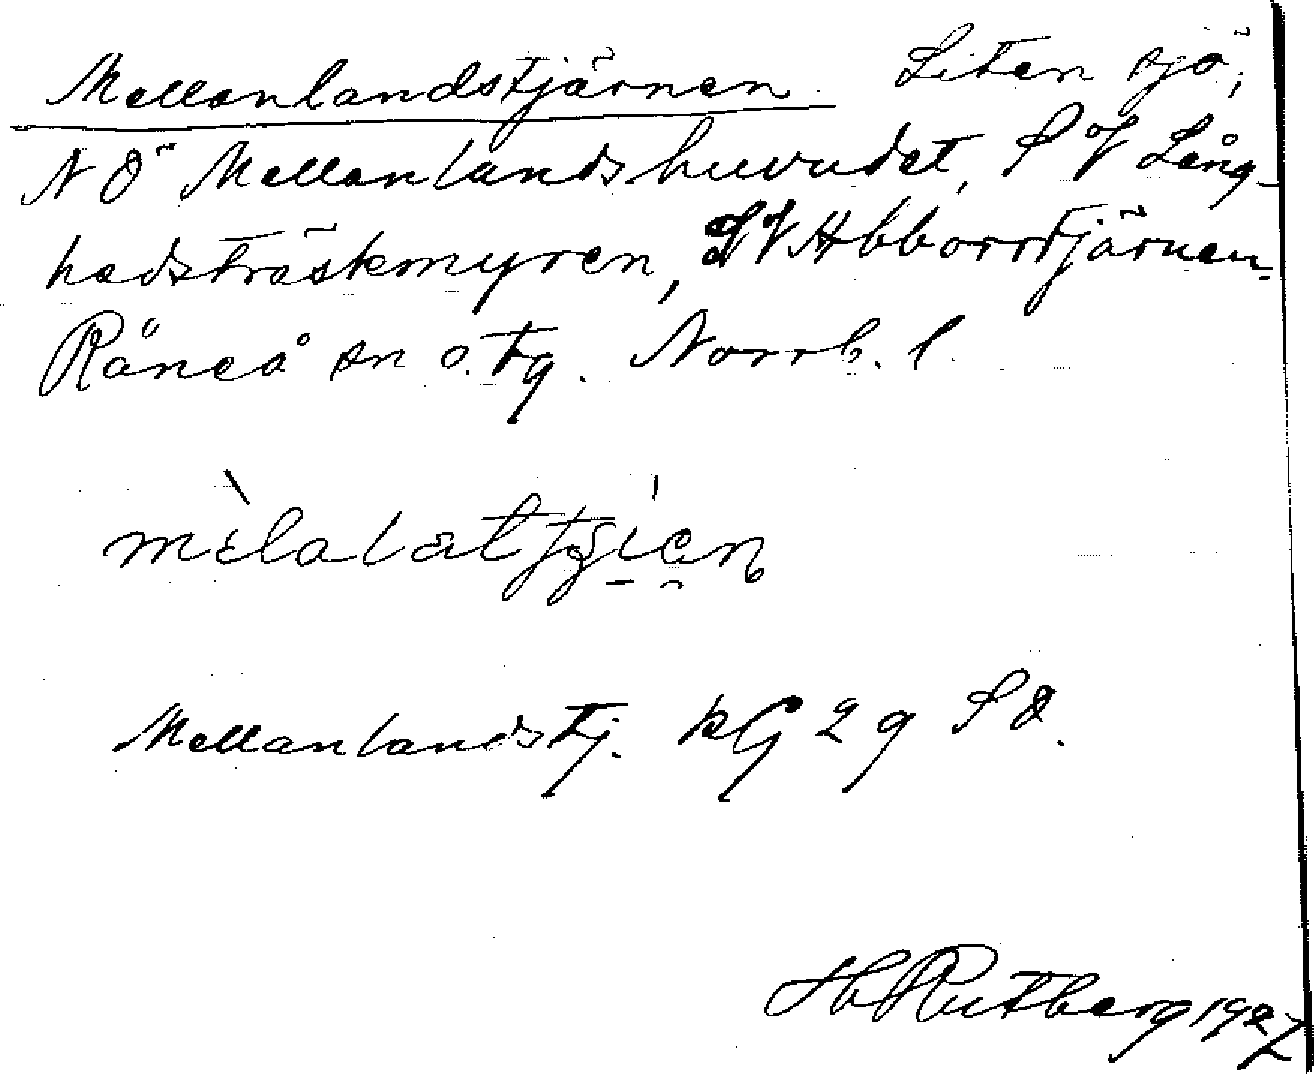 Mellanlandstjärnen. Liten sjö,
NÖ Mellanlandshuvudet, SV Lång-
hedsträskmyren, SV Abborrtjärnen.
Råneå sn o. tg. Norrb. l.
Mellanlandstj. kG 29 SO.
H Rutberg 1927